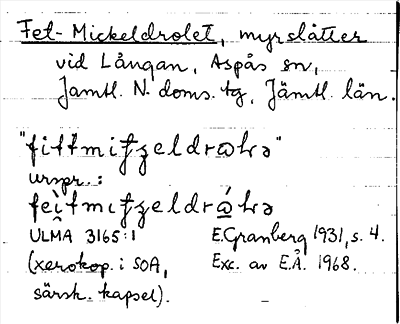 Fet-Mickeldrolet, myrslåtter
vid Långan, Aspås sn,
Jamtl. N. doms. tg, Jämtl. län.
urspr.:
ULMA 3165:1 E. Granberg 1931, s. 4.
(xerokop. i SOA, Exc. av E.Å. 1968.
särsk. kapsel).